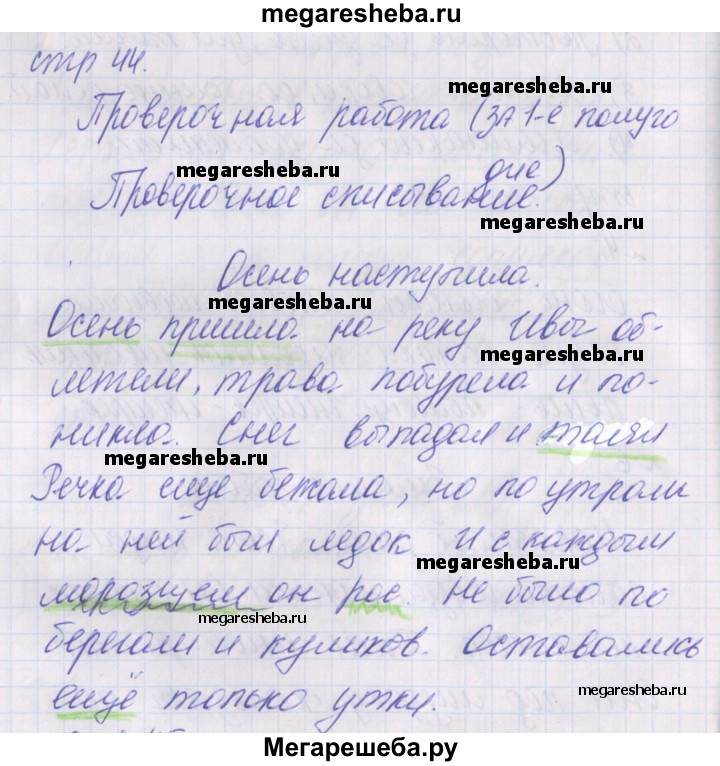 megaresheba.ru
стр 44.
megaresheba.ru
Проверочная работа (за 1-е полуго
дие)
megaresheba.ru
Проверочное списывание.
megaresheba.ru
Осень наступила.
megaresheba.ru
Осень пришла на реку Ивы об-
megaresheba.ru
летели, трава побурела и по-
никла. Снег выпадал и таял
megaresheba.ru
Речка еще бежала, но по утрам
на ней был ледок И с каждым
megaresheba.ru
морозцем он рос. Не было по
megaresheba.ru
берегам и куликов. Оставались
megaresheba.ru
ещё только утки.
Мегарешеба.ру